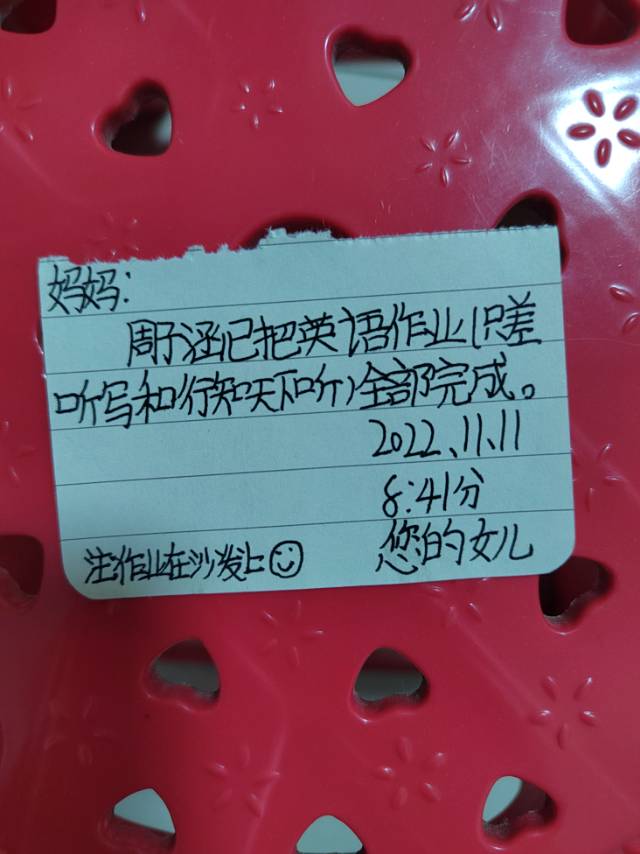 妈妈：
周子涵已把英语作业(只差
听写和行知天下听)全部完成。
2022.11.11
8:41分
注作业在沙发上
您的女儿